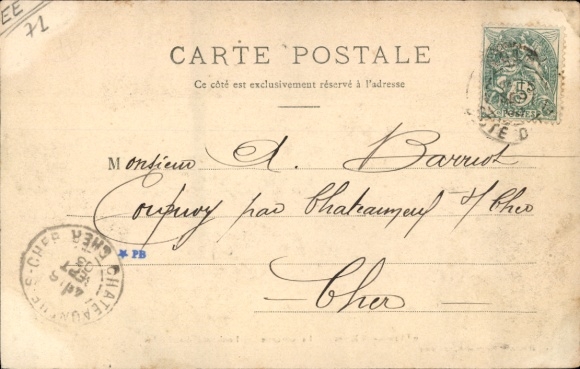 EE
71
CARTE POSTALE
Ce côté est exclusivement réservé à l'adresse
Monsieur A. Barriot
par Chateauneuf s/ Cher
Cher
CHATEAUNEUF-S-CHER
CHER
* PB
POSTES